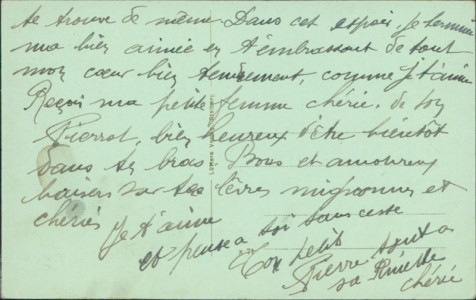 te trouve de même. Dans cet espoir, je termine
ma bien aimée en t'embrassant de tout
mon cœur bien tendrement, comme je t'aime
Reçois ma petite femme chérie, de ton
Pierrot, bien heureux d'être bientôt
dans tes bras Bons et amoureux
baisers sur tes lèvres mignonnes et
chéries Je t'aime
et pense a toi sans cesse
Ton petit
Pierre tout a
sa Ninette
chérie